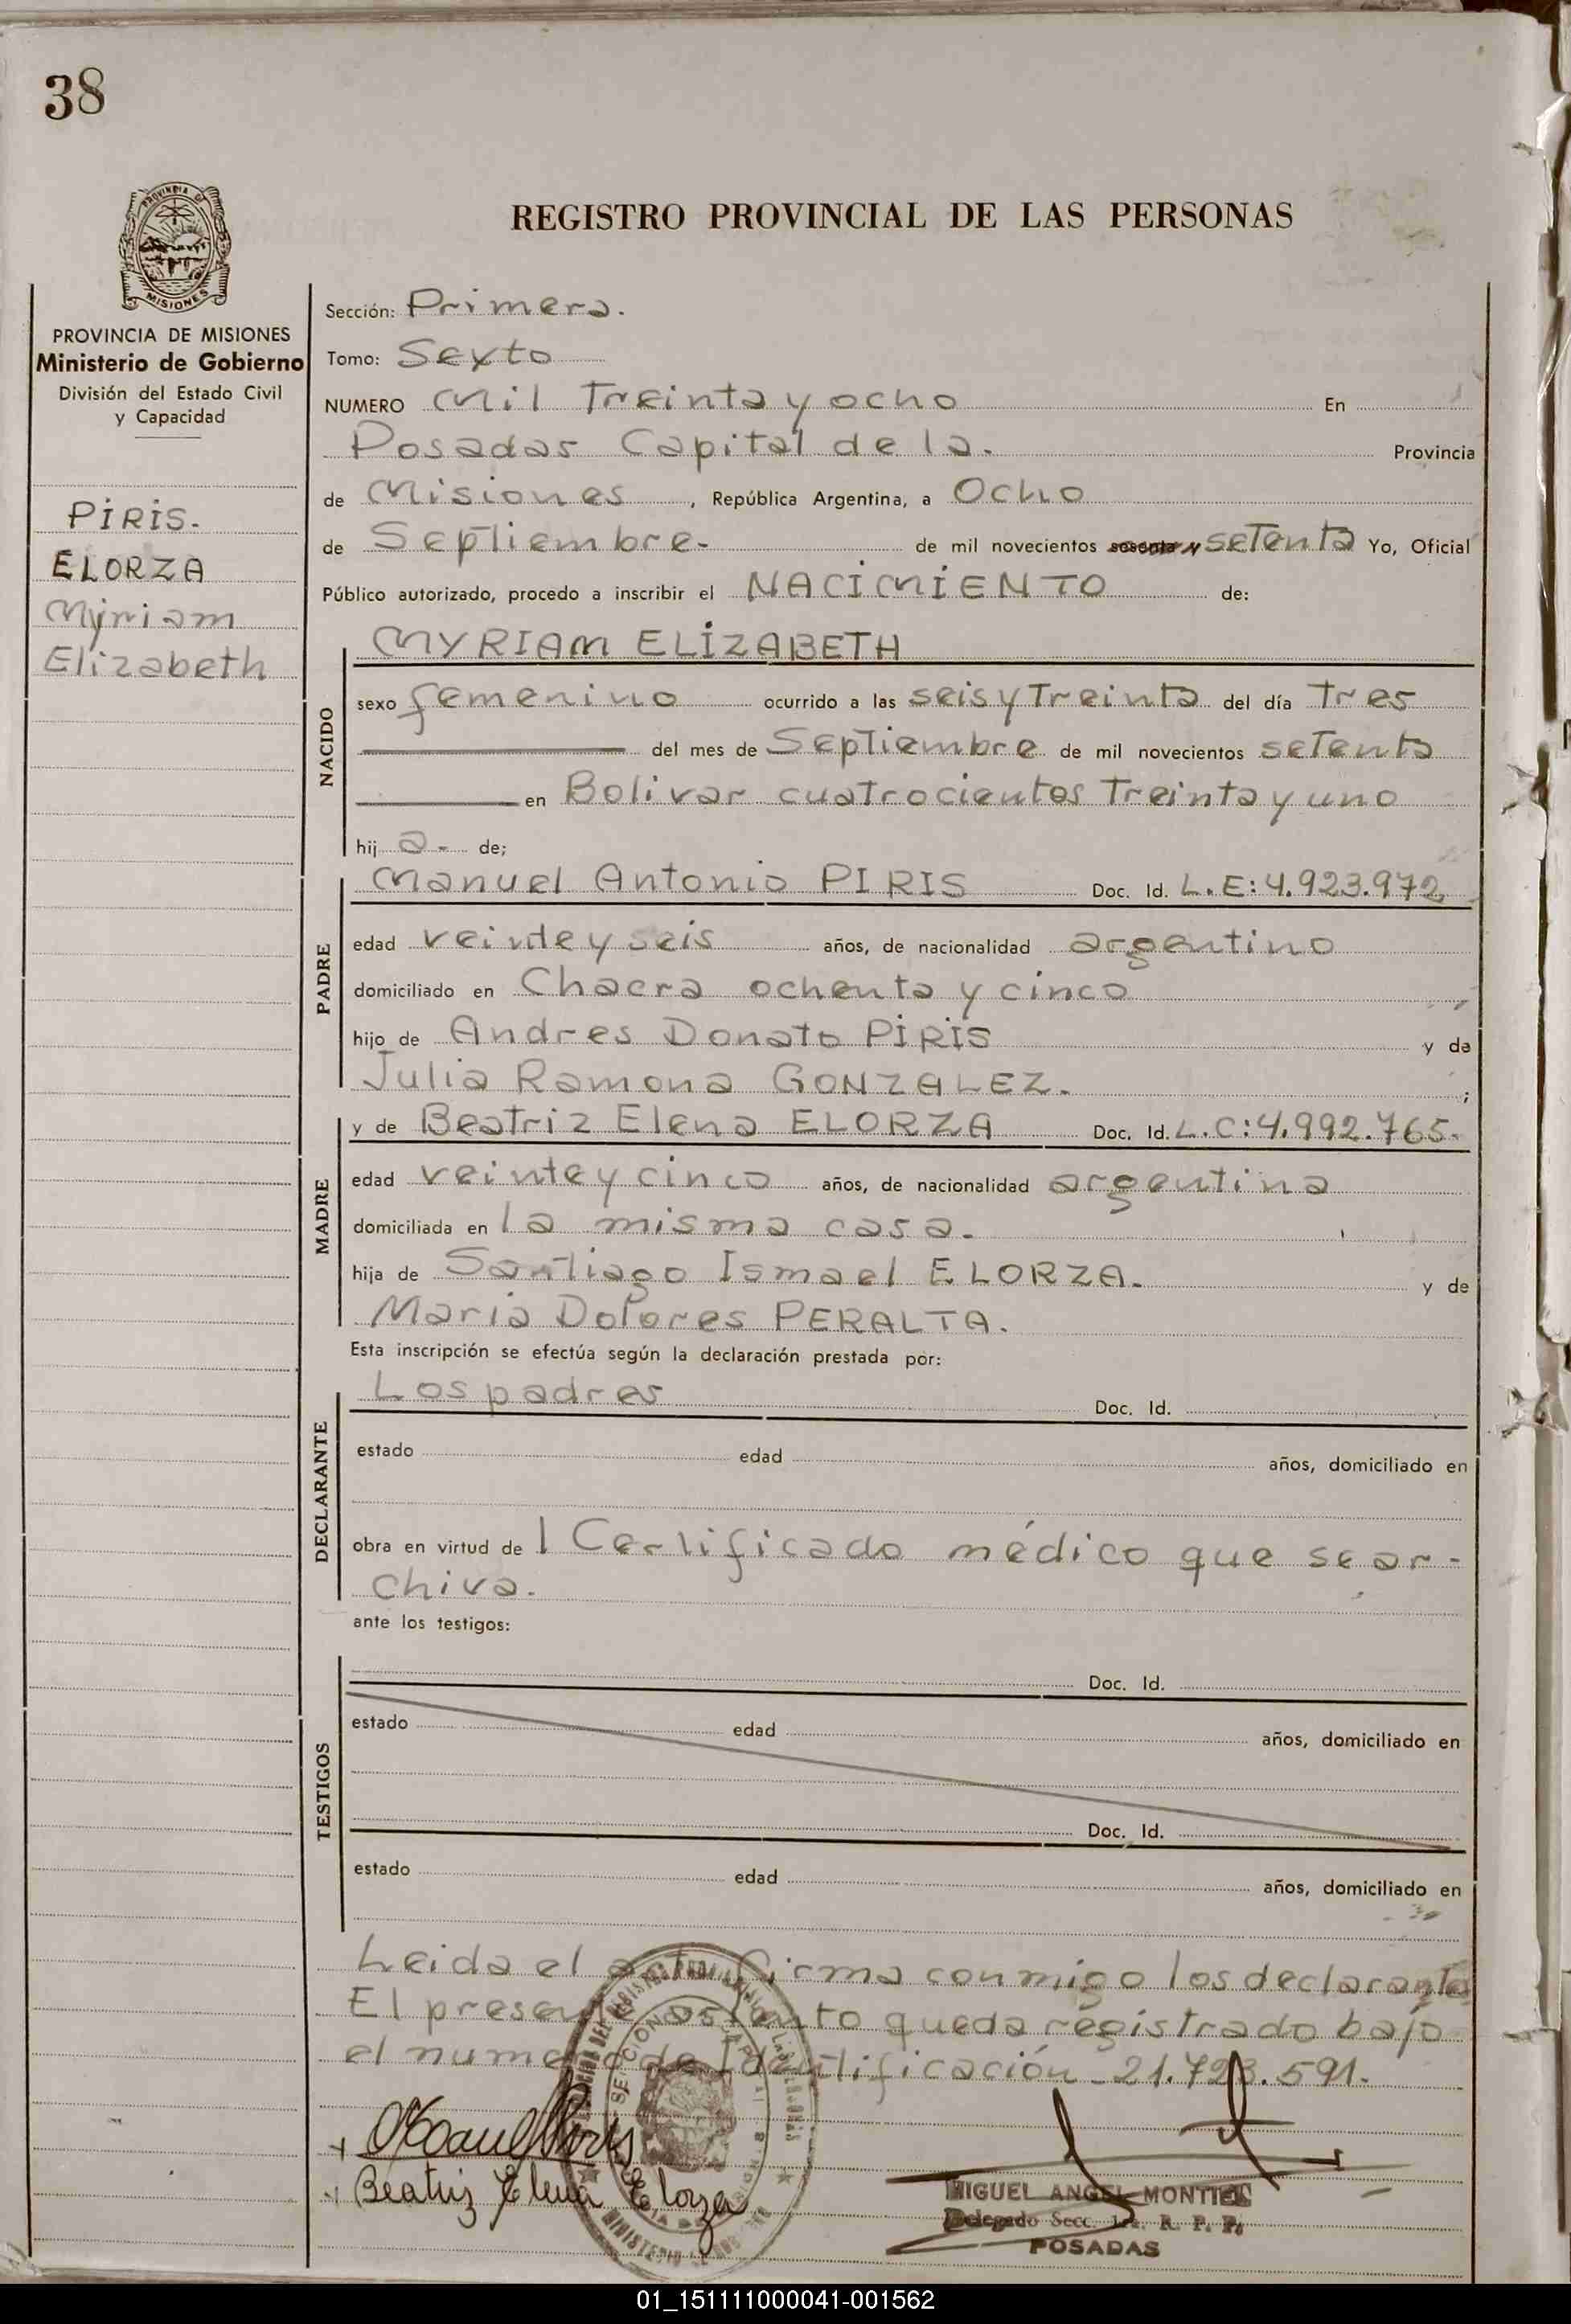 38
REGISTRO PROVINCIAL DE LAS PERSONAS
PROVINCIA DE MISIONES
MISIONES
PROVINCIA DE MISIONES
Ministerio de Gobierno
División del Estado Civil
y Capacidad
PIRIS.
ELORZA
Myriam
Elizabeth
Sección: Primera.
Tomo: Sexto
NUMERO Mil Treinta y ocho En
Posadas Capital de la. Provincia
de Misiones, República Argentina, a Ocho
de Septiembre. de mil novecientos sesenta setenta Yo, Oficial
Público autorizado, procedo a inscribir el NACIMIENTO de:
NACIDO
MYRIAM ELIZABETH
sexo femenino ocurrido a las seis y Treinta del día Tres
del mes de Septiembre de mil novecientos setenta
en Bolivar cuatrocientos Treinta y uno
hij a- de;
PADRE
Manuel Antonio PIRIS Doc. Id. L.E:4.923.972
edad veinte y seis años, de nacionalidad argentino
domiciliado en Chacra ochenta y cinco
hijo de Andres Donato PIRIS y de
Julia Ramona GONZALEZ. ;
MADRE
y de Beatriz Elena ELORZA Doc. Id. L.C:4.992.765.
edad veinte y cinco años, de nacionalidad argentina
domiciliada en la misma casa.
hija de Santiago Ismael ELORZA. y de
Maria Dolores PERALTA.
Esta inscripción se efectúa según la declaración prestada por:
DECLARANTE
Los padres Doc. Id.
estado edad años, domiciliado en
obra en virtud de l Certificado médico que se ar-
chiva.
ante los testigos:
TESTIGOS
Doc. Id.
estado edad años, domiciliado en
Doc. Id.
estado edad años, domiciliado en
Leida el acta firma conmigo los declarantes
El presente asiento queda registrado bajo
el numero de Identificación - 21.723.591.
Beatriz Elena Elorza
MIGUEL ANGEL MONTIEL
Delegado Secc. 1ra. R. P. P.
POSADAS
01_151111000041-001562